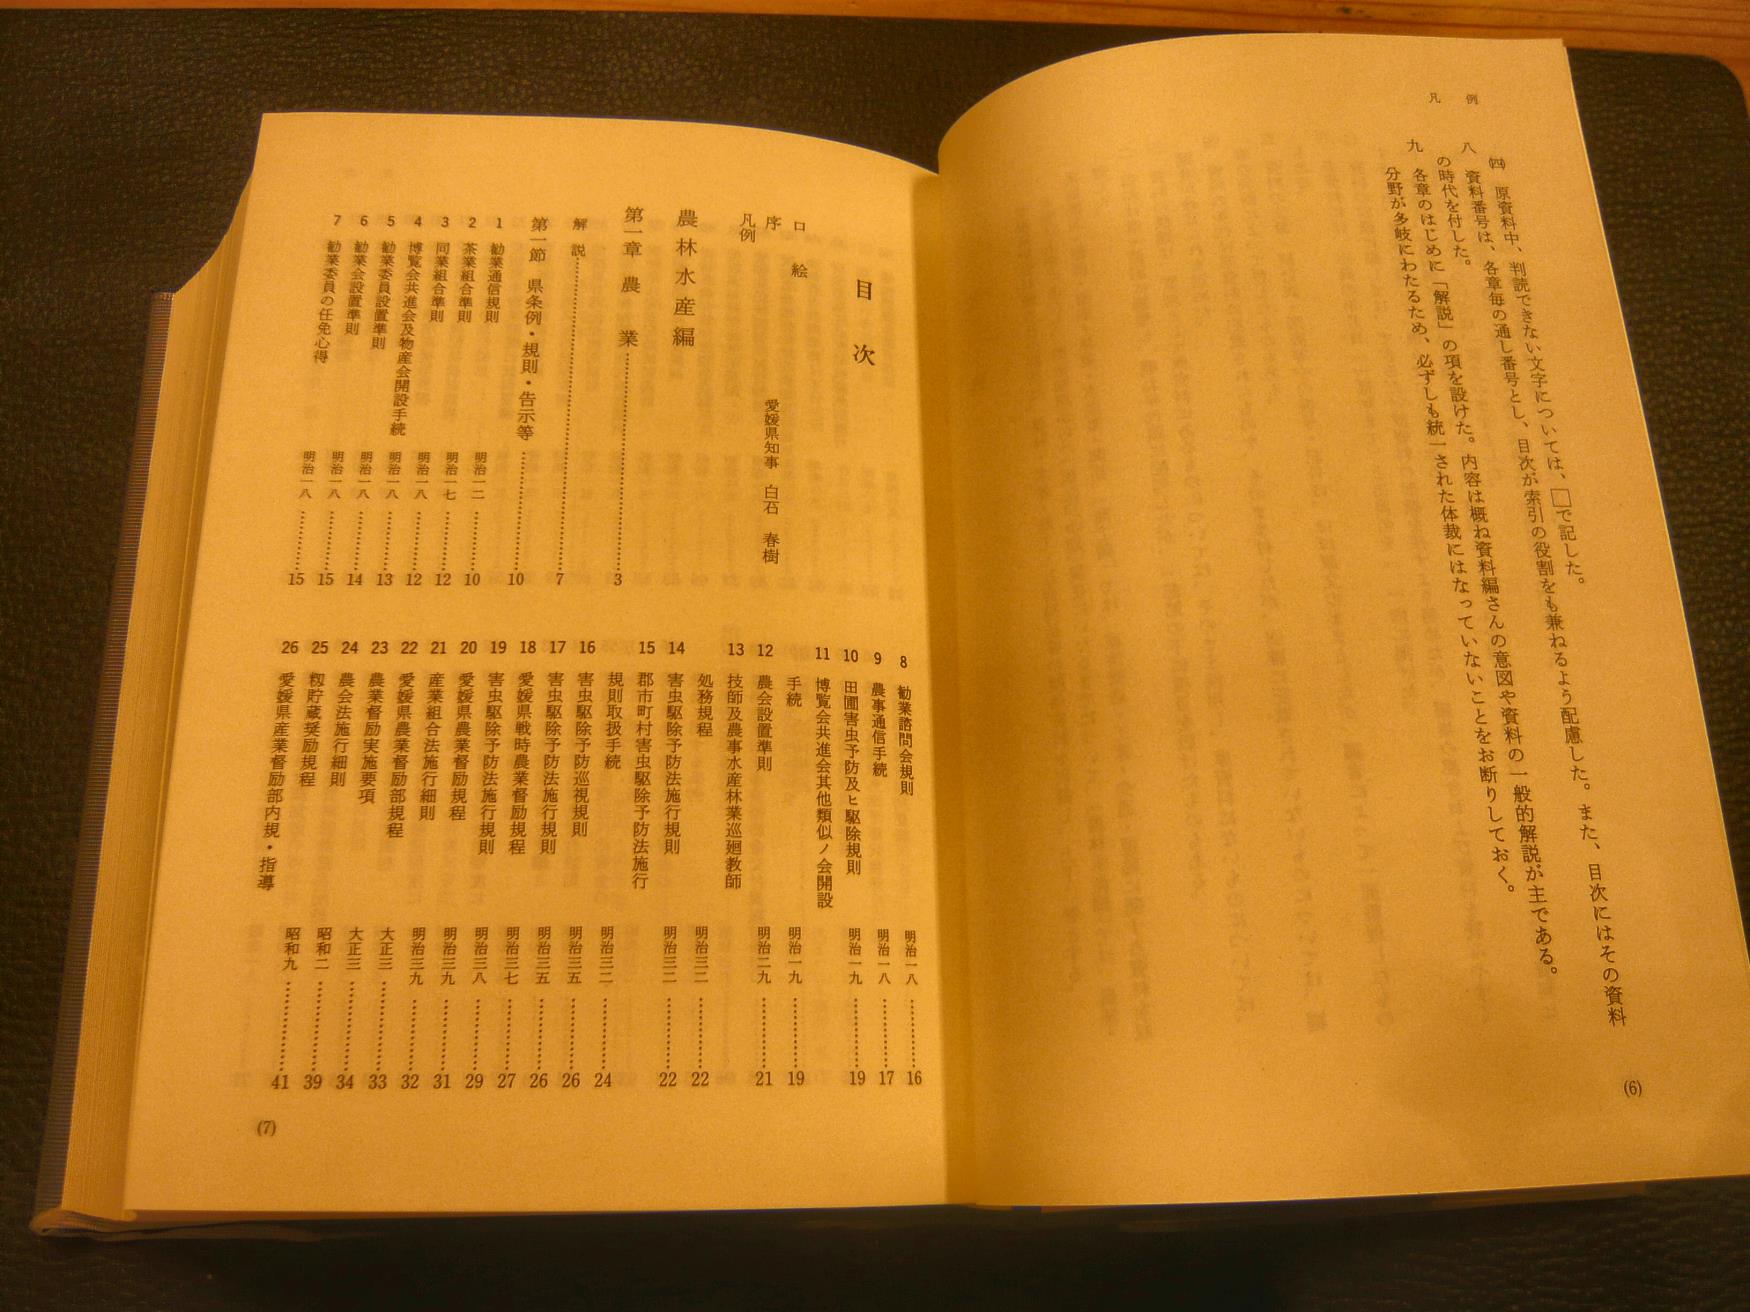 凡例
㈣ 原資料中、判読できない文字については、□で記した。
八 資料番号は、各章毎の通し番号とし、目次が索引の役割をも兼ねるよう配慮した。また、目次にはその資料
の時代を付した。
九 各章のはじめに「解説」の項を設けた。内容は概ね資料編さんの意図や資料の一般的解説が主である。
分野が多岐にわたるため、必ずしも統一された体裁にはなっていないことをお断りしておく。
(6)
目次
口絵
序 愛媛県知事 白石 春樹
凡例
農林水産編
第一章 農業……3
解説……7
第一節 県条例・規則・告示等……10
1 勧業通信規則 明治一二……10
2 茶業組合準則 明治一七……12
3 同業組合準則 明治一八……12
4 博覧会共進会及物産会開設手続 明治一八……13
5 勧業委員設置準則 明治一八……14
6 勧業会設置準則 明治一八……15
7 勧業委員の任免心得 明治一八……15
8 勧業諮問会規則 明治一八……16
9 農事通信手続 明治一八……17
10 田圃害虫予防及ヒ駆除規則 明治一九……19
11 博覧会共進会其他類似ノ会開設
手続 明治一九……19
12 農会設置準則 明治二九……21
13 技師及農事水産林業巡廻教師
処務規程 明治三二……22
14 害虫駆除予防法施行規則 明治三二……22
15 郡市町村害虫駆除予防法施行
規則取扱手続 明治三二……24
16 害虫駆除予防巡視規則 明治三五……26
17 害虫駆除予防法施行規則 明治三五……26
18 愛媛県戦時農業督励規程 明治三七……27
19 害虫駆除予防法施行規則 明治三八……29
20 愛媛県農業督励規程 明治三九……31
21 産業組合法施行細則 明治三九……32
22 愛媛県農業督励部規程 大正三……33
23 農業督励実施要項 大正三……34
24 農会法施行細則 昭和二……39
25 籾貯蔵奨励規程 昭和九……41
26 愛媛県産業督励部内規・指導
(7)